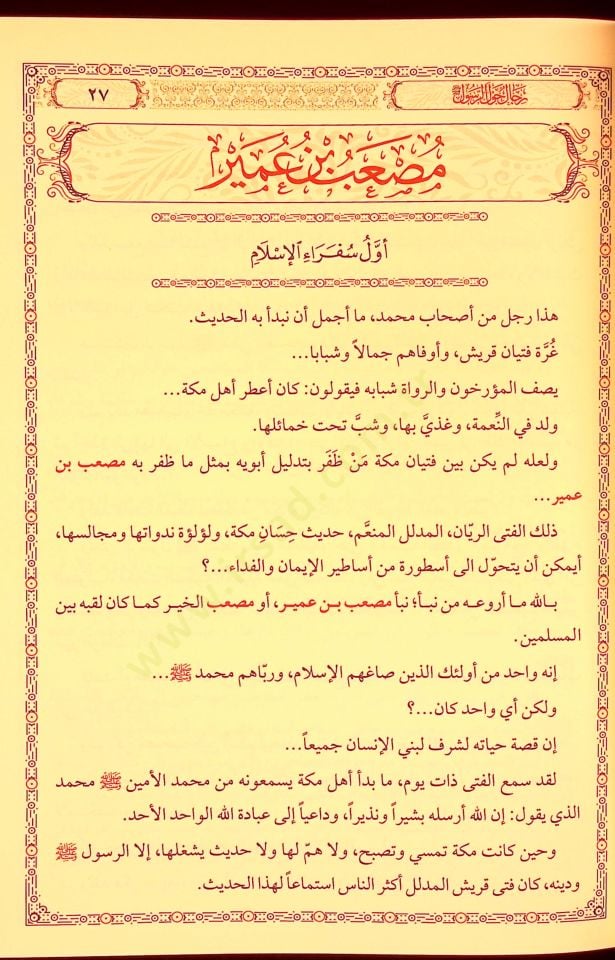 رجال حول الرسول ﷺ
٢٧
مُصْعَبُ بْنُ عُمَيْرٍ
أوَّلُ سُفَرَاءِ الإسْلَامِ
هذا رجل من أصحاب محمد، ما أجمل أن نبدأ به الحديث.
غُرَّة فتيان قريش، وأوفاهم جمالاً وشبابا...
يصف المؤرخون والرواة شبابه فيقولون: كان أعطر أهل مكة...
ولد في النِّعمة، وغذيَّ بها، وشبَّ تحت خمائلها.
ولعله لم يكن بين فتيان مكة مَنْ ظَفَر بتدليل أبويه بمثل ما ظفر به مصعب بن
عمير...
ذلك الفتى الريّان، المدلل المنعَّم، حديث حِسَانِ مكة، ولؤلؤة ندواتها ومجالسها،
أيمكن أن يتحوّل الى أسطورة من أساطير الإيمان والفداء...؟
بالله ما أروعه من نبأ؛ نبأ مصعب بن عمير، أو مصعب الخير كما كان لقبه بين
المسلمين.
إنه واحد من أولئك الذين صاغهم الإسلام، وربّاهم محمد ﷺ...
ولكن أي واحد كان...؟
إن قصة حياته لشرف لبني الإنسان جميعاً...
لقد سمع الفتى ذات يوم، ما بدأ أهل مكة يسمعونه من محمد الأمين ﷺ محمد
الذي يقول: إن الله أرسله بشيراً ونذيراً، وداعياً إلى عبادة الله الواحد الأحد.
وحين كانت مكة تمسي وتصبح، ولا همّ لها ولا حديث يشغلها، إلا الرسول ﷺ
ودينه، كان فتى قريش المدلل أكثر الناس استماعاً لهذا الحديث.